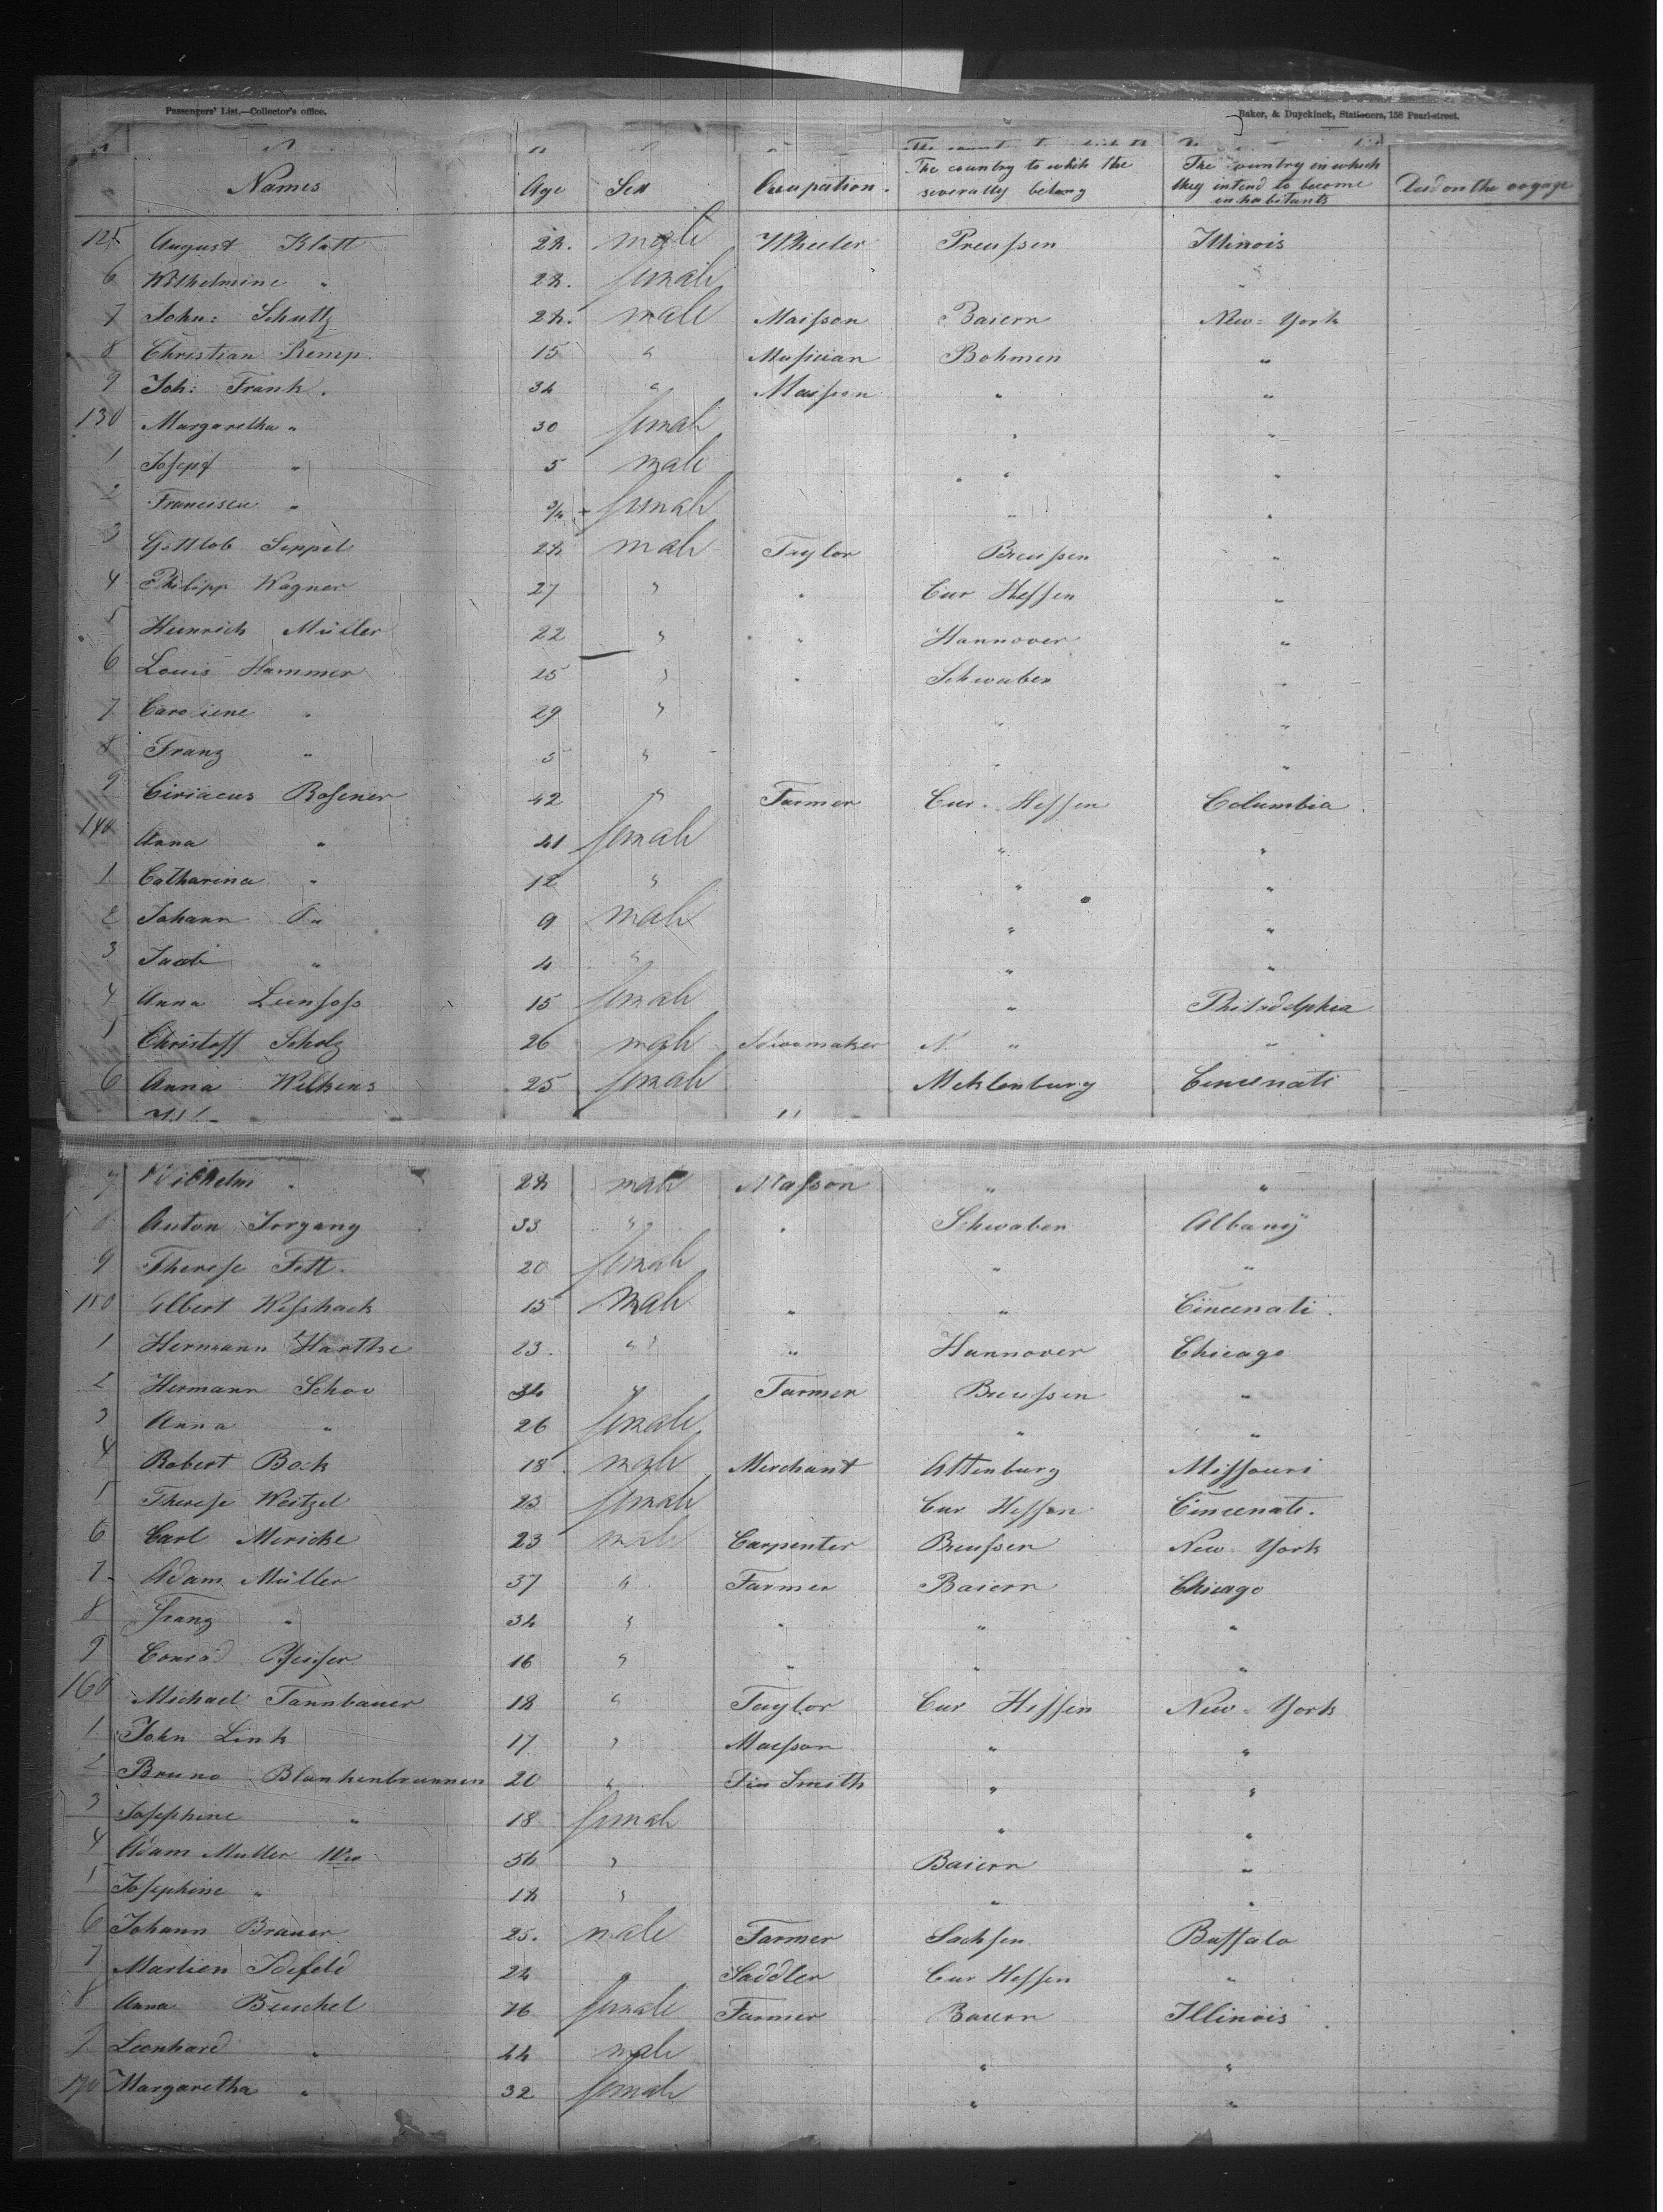 Passengers' List.—Collector's office. Baker, & Duyckinck, Stationers, 158 Pearl-street.
Names Age Sex Occupation. The country to which the severally belong The country in which they intend to become inhabitants Died on the voyage
125 August Klatt 24. male Wheeler Preussen Illinois
6 Wilhelmine " 24. female "
7 John: Schultz 24. male Maisson Baiern New-York
8 Christian Kemp. 15 " Musician Bohmen "
9 Joh: Frank. 34 " Maisson " "
130 Margaretha " 30 female " "
1 Josepf " 5 male " "
2 Francisca " 3/4 female " "
3 Gottlob Seppel 24 male Taylor Breussen "
4 Philipp Wagner 27 " " Cur Hessen "
5 Heinrich Müller 22 " " Hannover "
6 Louis Hammer 25 " " Schwaben "
7 Caroliene " 29 " " "
8 Franz " 5 " " "
9 Ciriacus Rosener 42 " Farmer Cur-Hessen Columbia
140 Anna " 41 female " "
1 Catharina " 12 " " "
2 Johann " 9 male " "
3 Jacob " 4 " " "
4 Anna 15 female " Philadelphia
5 Christoff Scholz 26 male Shoomaker " "
6 Anna Wilkens 25 female Meklenburg Cincenati
7 Wilhelm " 24 male Masson " "
8 Anton Jorgang 33 " " Schwaben Albany
9 Therese Fett. 20 female " "
150 Albert Wesshack 15 male " " Cincenati.
1 Hermann Harthe 23. " " Hannover Chicago
2 Hermann Schoo 34 " Farmer Breussen "
3 Anna " 26 female " "
4 Robert Bock 18 male Merchant Altenburg Missouri
5 Therese Weitzel 23 female Cur Hessen Cincenati.
6 Carl Mericke 23 male Carpenter Breussen New-York
7 Adam Müller 37 " Farmer Baiern Chicago
8 Franz " 34 " " " "
9 Conrad Pfeiffer 16 " " " "
160 Michael Tannbauer 18 " Taylor Cur Hessen New-York
1 John Link 17 " Maesson " "
2 Bruno Blankenbrunnen 20 " Tin Smith " "
3 Josephine " 18 female " "
4 Adam Muller Wwe 56 " Baiern "
5 Josephine " 14 " " "
6 Johann Brauer 25. male Farmer Sachsen Buffalo
7 Martien Idefeld 24 " Saddler Cur Hessen "
8 Anna Beuschel 76 female Farmer Baiern Illinois
9 Leonhard " 44 male " "
170 Margaretha " 32 female " "